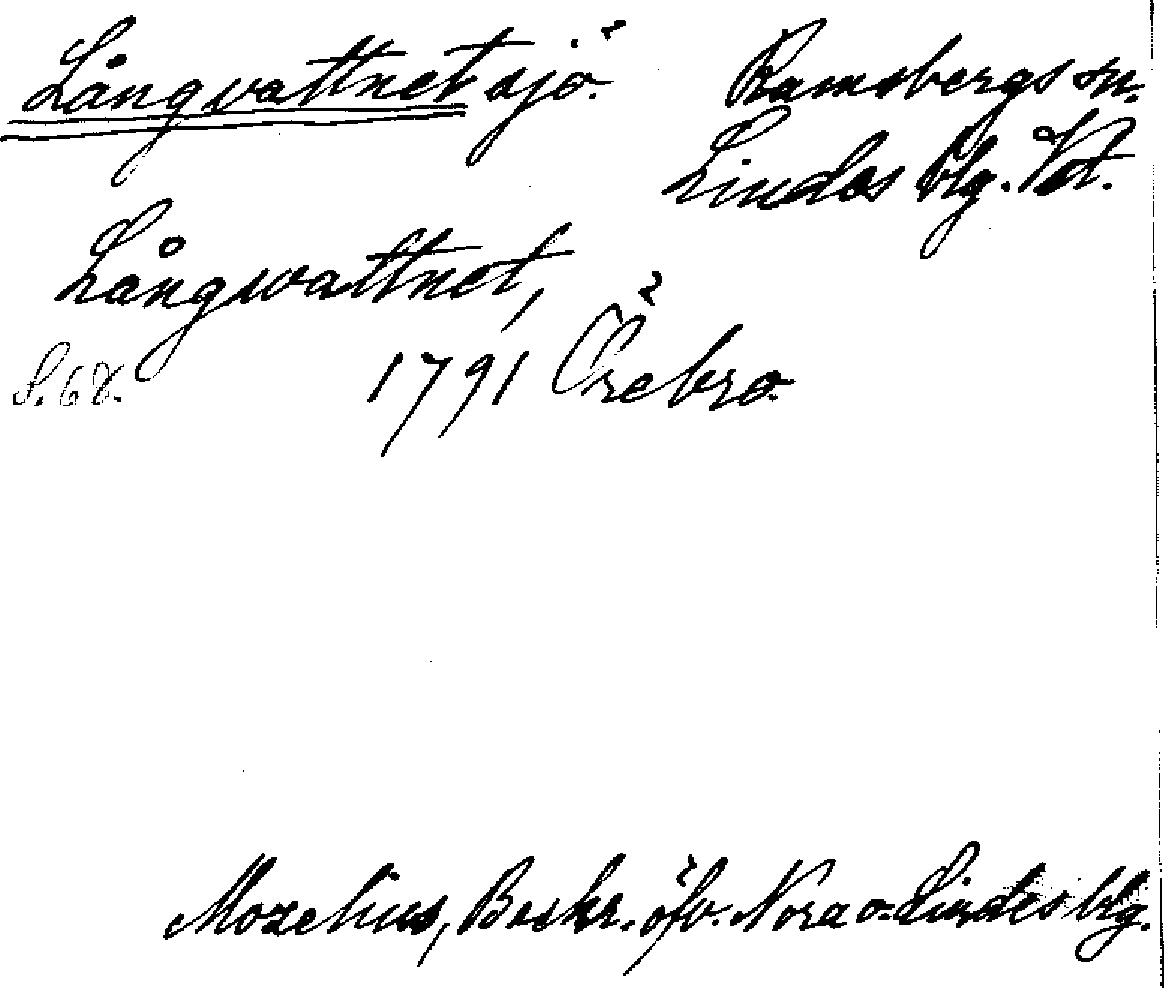 Långvattnet sjö. Ramsbergs sn.
Lindes blg. Vst.
Långwattnet,
S. 68. 1791 Örebro.
Mozelius, Beskr. öfv. Nora o. Lindes blg.